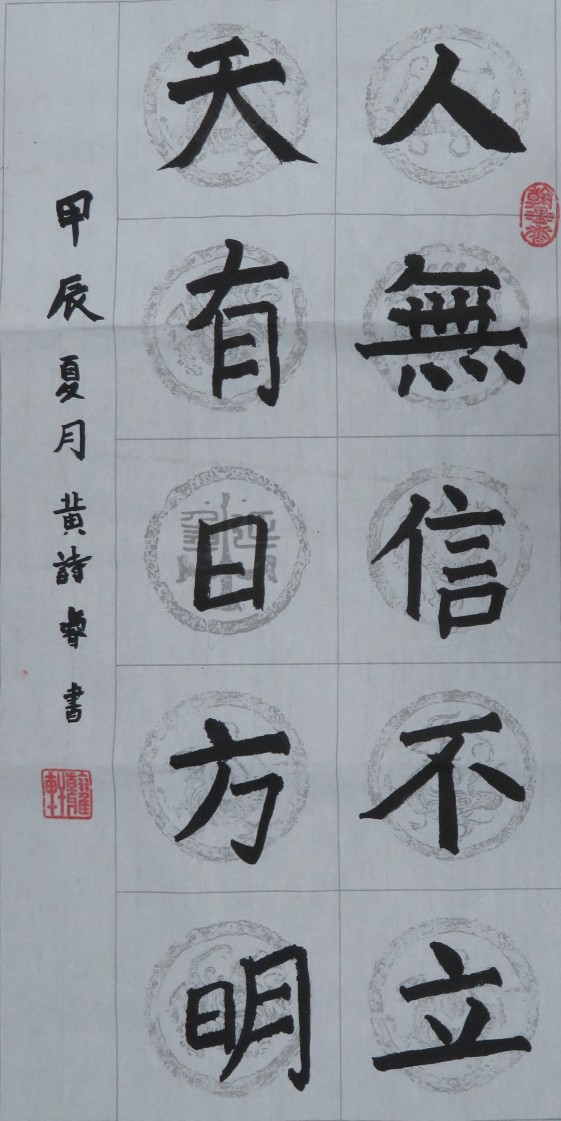 人無信不立
天有日方明
甲辰夏月黄詩睿書
翰墨香